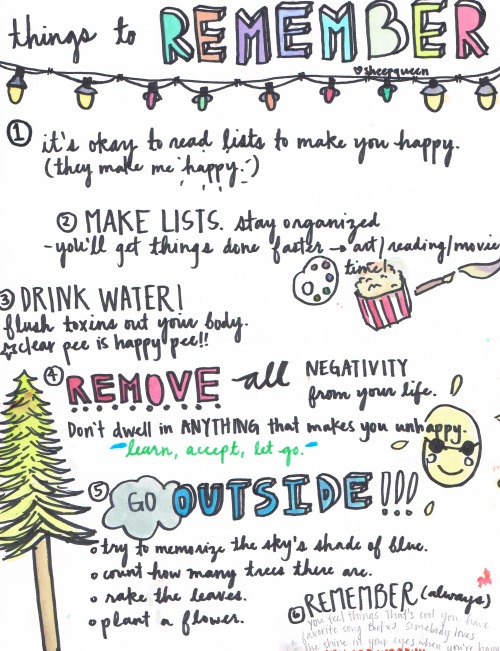 things to REMEMBER
♡sheepqueen
① it's okay to read lists to make you happy.
(they make me happy.)
② MAKE LISTS. stay organized
-you'll get things done faster → art/reading/movie
time!
③ DRINK WATER!
flush toxins out your body.
☆clear pee is happy pee!!
④ REMOVE all NEGATIVITY
from your life.
Don't dwell in ANYTHING that makes you unhappy.
-learn, accept, let go.-
⑤ GO OUTSIDE!!!
• try to memorize the sky's shade of blue.
• count how many trees there are.
• rake the leaves.
• plant a flower.
⑥ REMEMBER (always)
you feel things That's cool you have
favorite song Somebody loves
the shine in your eyes when you're happy